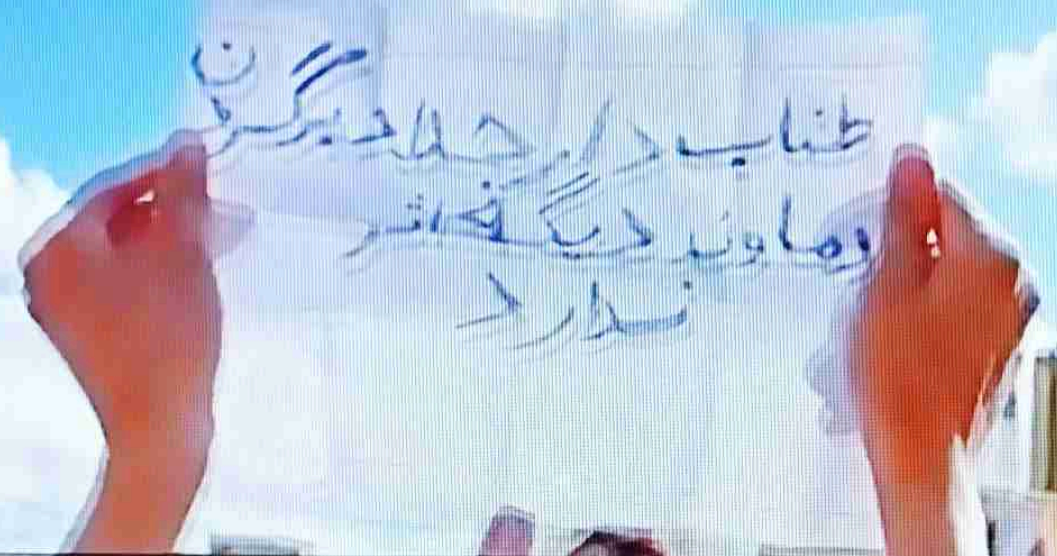 طناب دار جلاد بر گردن
دماوند دیگه اثر
ندارد